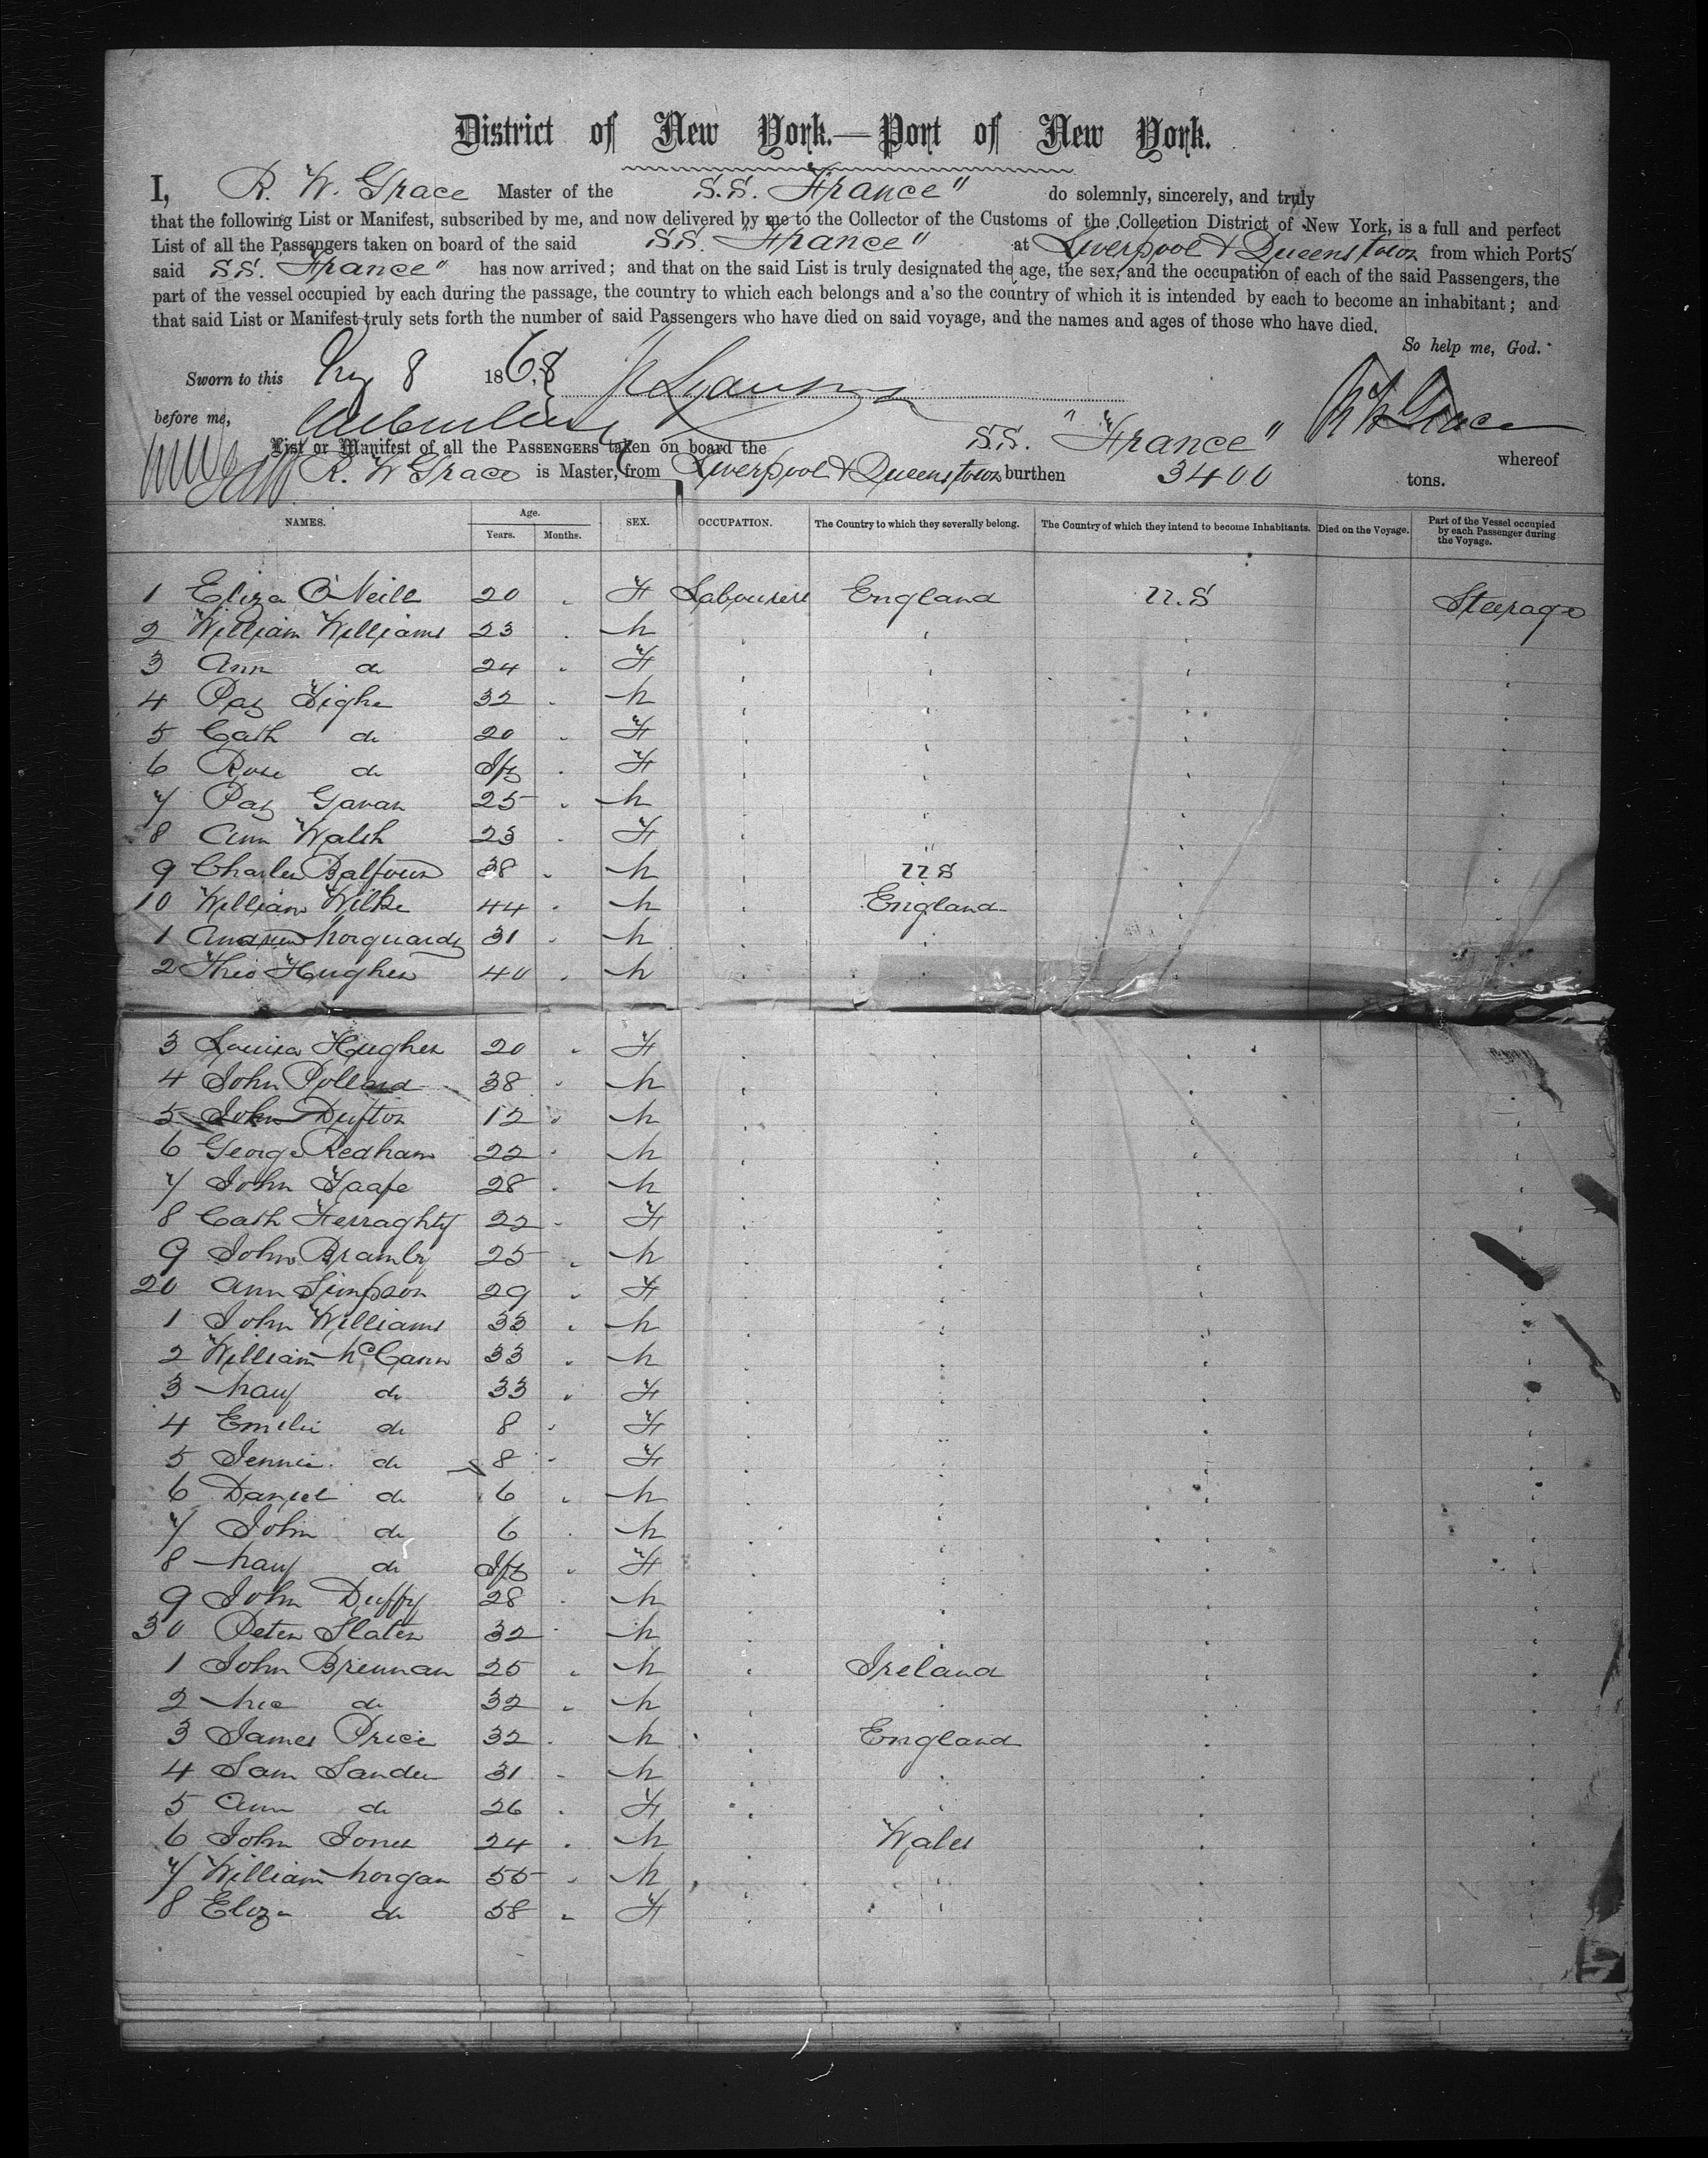 District of New York.—Port of New York.
I, R. W. Grace Master of the S.S. "France" do solemnly, sincerely, and truly
that the following List or Manifest, subscribed by me, and now delivered by me to the Collector of the Customs of the Collection District of New York, is a full and perfect
List of all the Passengers taken on board of the said S.S. "France" at Liverpool & Queenstown from which Ports
said S.S. "France" has now arrived; and that on the said List is truly designated the age, the sex, and the occupation of each of the said Passengers, the
part of the vessel occupied by each during the passage, the country to which each belongs and a'so the country of which it is intended by each to become an inhabitant; and
that said List or Manifest truly sets forth the number of said Passengers who have died on said voyage, and the names and ages of those who have died.
So help me, God.
Sworn to this 8 1868
before me, R W Grace
List or Manifest of all the PASSENGERS taken on board the S.S. "France" whereof
R. W Grace is Master, from Liverpool & Queenstown burthen 3400 tons.
NAMES. Age. Years. Months. SEX. OCCUPATION. The Country to which they severally belong. The Country of which they intend to become Inhabitants. Died on the Voyage. Part of the Vessel occupied by each Passenger during the Voyage.
1 Eliza O'Neill 20 " F Labourers England U.S Steerage
2 William Williams 23 " M " " " "
3 Ann do 24 " F " " " "
4 Pat Tighe 32 " M " " " "
5 Cath do 20 " F " " " "
6 Rose do Inft " F " " " "
7 Pat Gavan 25 " M " " " "
8 Ann Walsh 23 " F " " " "
9 Charles Balfour 38 " M " U S " "
10 William Wilke 44 " M " England " "
1 Andrew 31 " M " " " "
2 Theo Hughes 40 " M " " " "
3 Louisa Hughes 20 " F " " " "
4 John Pollard 38 " M " " " "
5 John Dufton 12 " M " " " "
6 George Redham 22 " M " " " "
7 John 28 " M " " " "
8 Cath Ferraghty 22 " F " " " "
9 John Bramly 25 " M " " " "
20 Ann Simpson 29 " F " " " "
1 John Williams 33 " M " " " "
2 William McCann 33 " M " " " "
3 Mary do 33 " F " " " "
4 Emelie do 8 " F " " " "
5 Jennie do 8 " F " " " "
6 Daniel do 6 " M " " " "
7 John do 6 " M " " " "
8 Mary do Inft " F " " " "
9 John Duffy 28 " M " " " "
30 Peter Slater 32 " M " " " "
1 John Brennan 25 " M " Ireland " "
2 Mic do 32 " M " " " "
3 James Price 32 " M " England " "
4 Sam Sander 31 " M " " " "
5 Ann do 26 " F " " " "
6 John Jones 24 " M " Wales " "
7 William Morgan 55 " M " " " "
8 Eliza do 58 " F " " " "